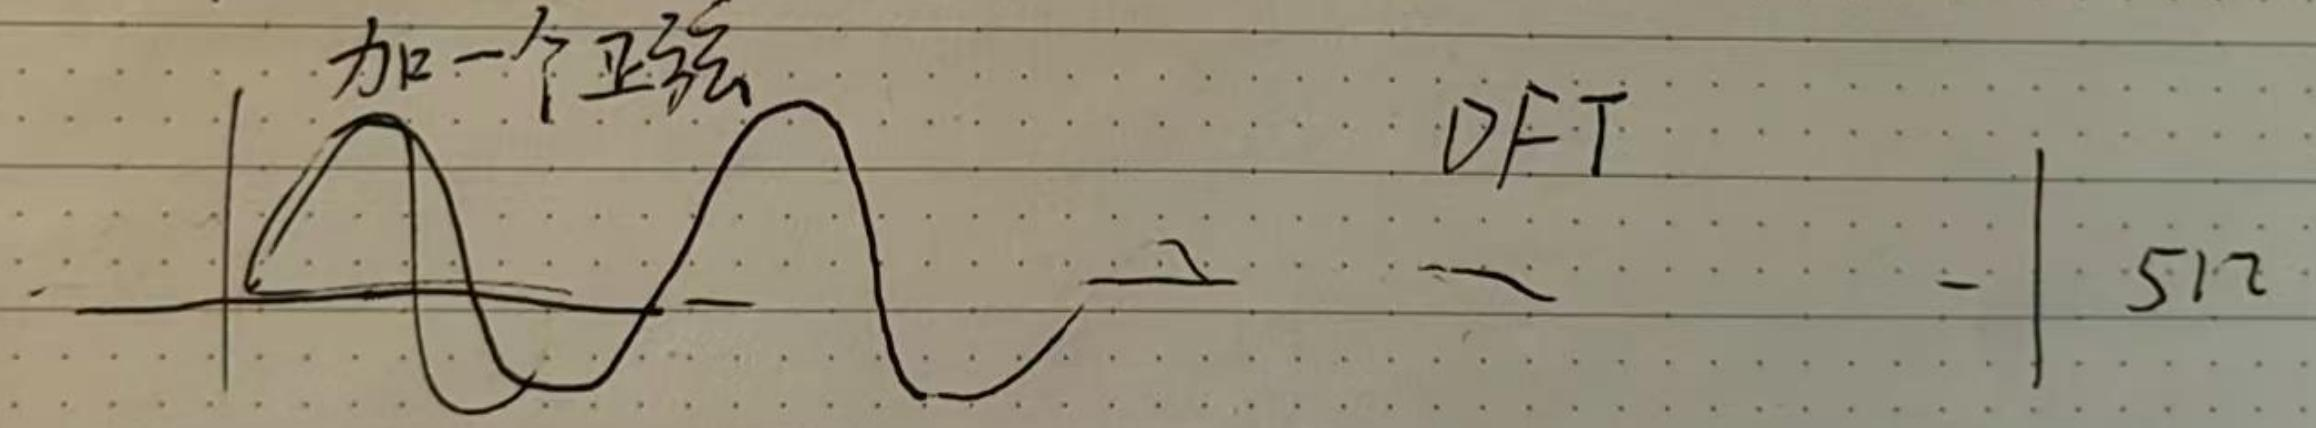 加一个正弦
DFT
512